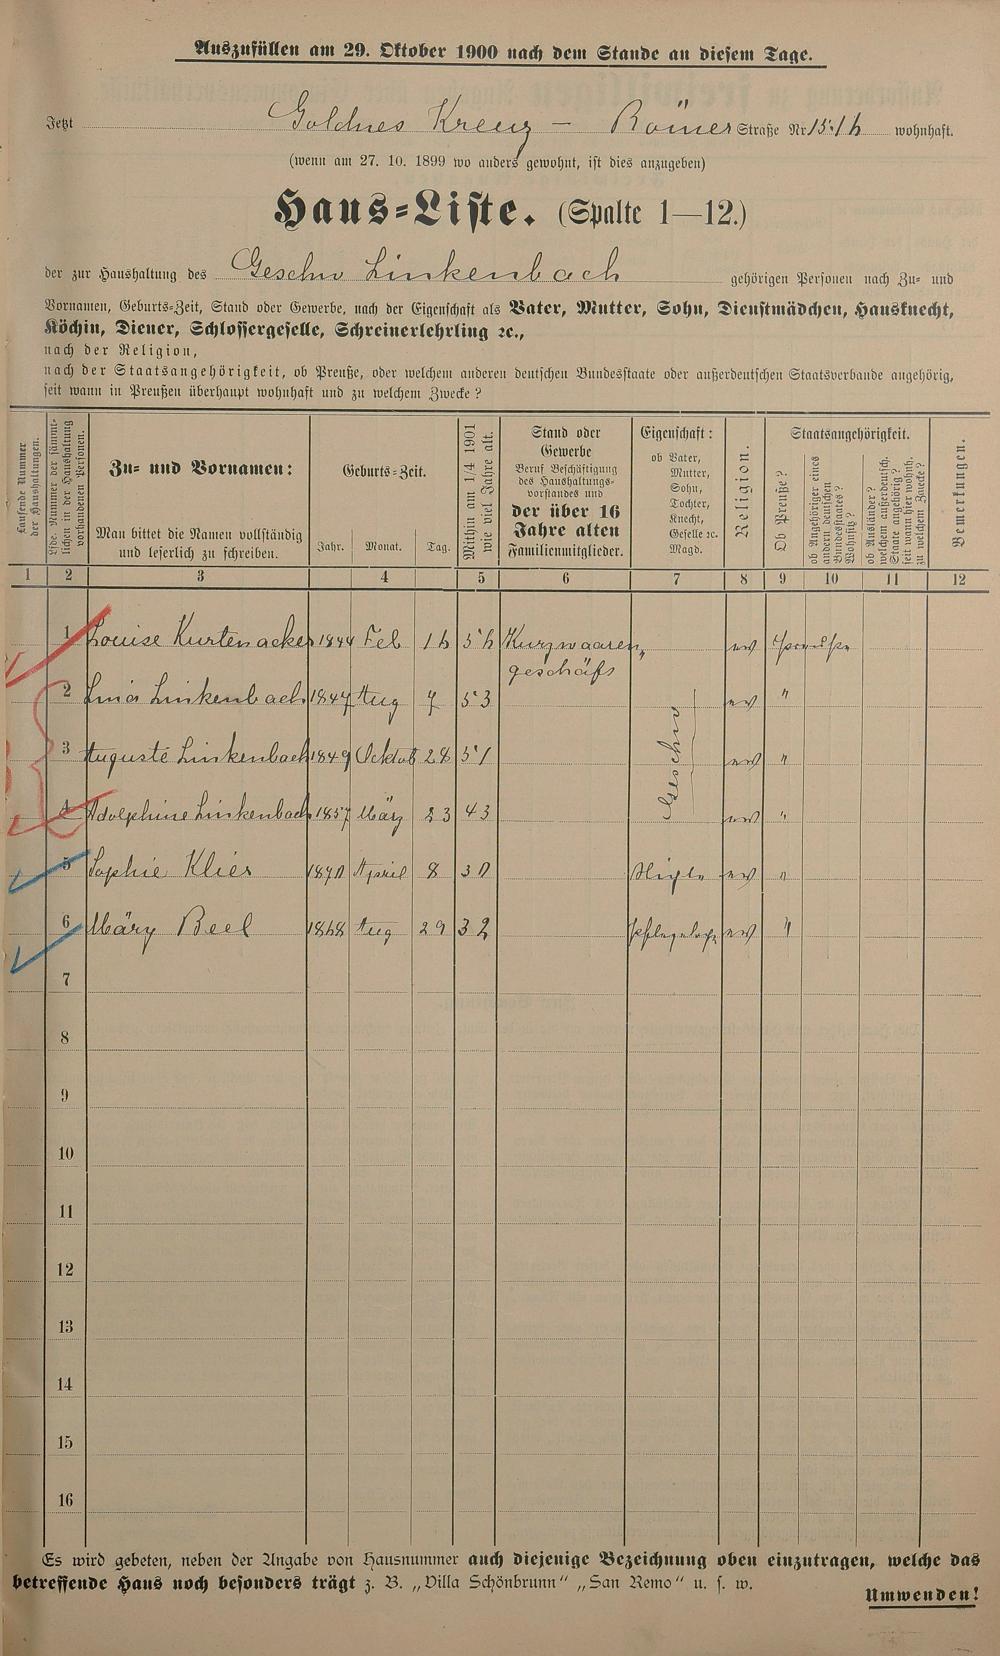 Auszufüllen am 29. Oktober 1900 nach dem Stande an diesem Tage.
Jetzt Goldnes Kreuz – Römer Straße Nr. 15.16 wohnhaft.
(wenn am 27. 10. 1899 wo anders gewohnt, ist dies anzugeben)
Haus-Liste. (Spalte 1—12.)
der zur Haushaltung des Geschw Linkenbach gehörigen Personen nach Zu- und
Vornamen, Geburts-Zeit, Stand oder Gewerbe, nach der Eigenschaft als Vater, Mutter, Sohn, Dienstmädchen, Hausknecht,
Köchin, Diener, Schlossergeselle, Schreinerlehrling ꝛc.,
nach der Religion,
nach der Staatsangehörigkeit, ob Preuße, oder welchem anderen deutschen Bundesstaate oder außerdeutschen Staatsverbande angehörig,
seit wann in Preußen überhaupt wohnhaft und zu welchem Zwecke?
Laufende Nummer
der Haushaltungen.
Lfde. Nummer der sämmt-
lichen in der Haushaltung
vorhandenen Personen.
Zu- und Vornamen:
Man bittet die Namen vollständig
und leserlich zu schreiben.
Geburts-Zeit.
Jahr. Monat. Tag.
Mithin am 1/4 1901
wie viel Jahre alt.
Stand oder
Gewerbe
Beruf Beschäftigung
des Haushaltungs-
vorstandes und
der über 16
Jahre alten
Familienmitglieder.
Eigenschaft:
ob Vater,
Mutter,
Sohn,
Tochter,
Knecht,
Geselle ꝛc.
Magd.
Religion.
Staatsangehörigkeit.
Ob Preuße?
ob Angehöriger eines
andern deutschen
Bundesstaates?
Wohnsitz?
ob Ausländer?
welchem außerdeutsch.
Staate angehörig?
seit wann hier wohnh.
zu welchem Zwecke?
Bemerkungen.
1 2 3 4 5 6 7 8 9 10 11 12
1 Louise Kurtenacker 1844 Feb 16 56 Kurzwaaren- ev Preuße
geschäft
2 Lina Linkenbach 1847 Aug 7 53 Geschw ev "
3 Auguste Linkenbach 1849 Ocktob 28 51 ev "
4 Adolphine Linkenbach 1857 März 23 43 ev "
5 Sophie Klies 1870 April 8 30 ev "
6 Märy Beel 1868 Aug 29 32 ev "
7
8
9
10
11
12
13
14
15
16
Es wird gebeten, neben der Angabe von Hausnummer auch diejenige Bezeichnung oben einzutragen, welche das
betreffende Haus noch besonders trägt z. B. „Villa Schönbrunn" „San Remo" u. s. w.
Umwenden!